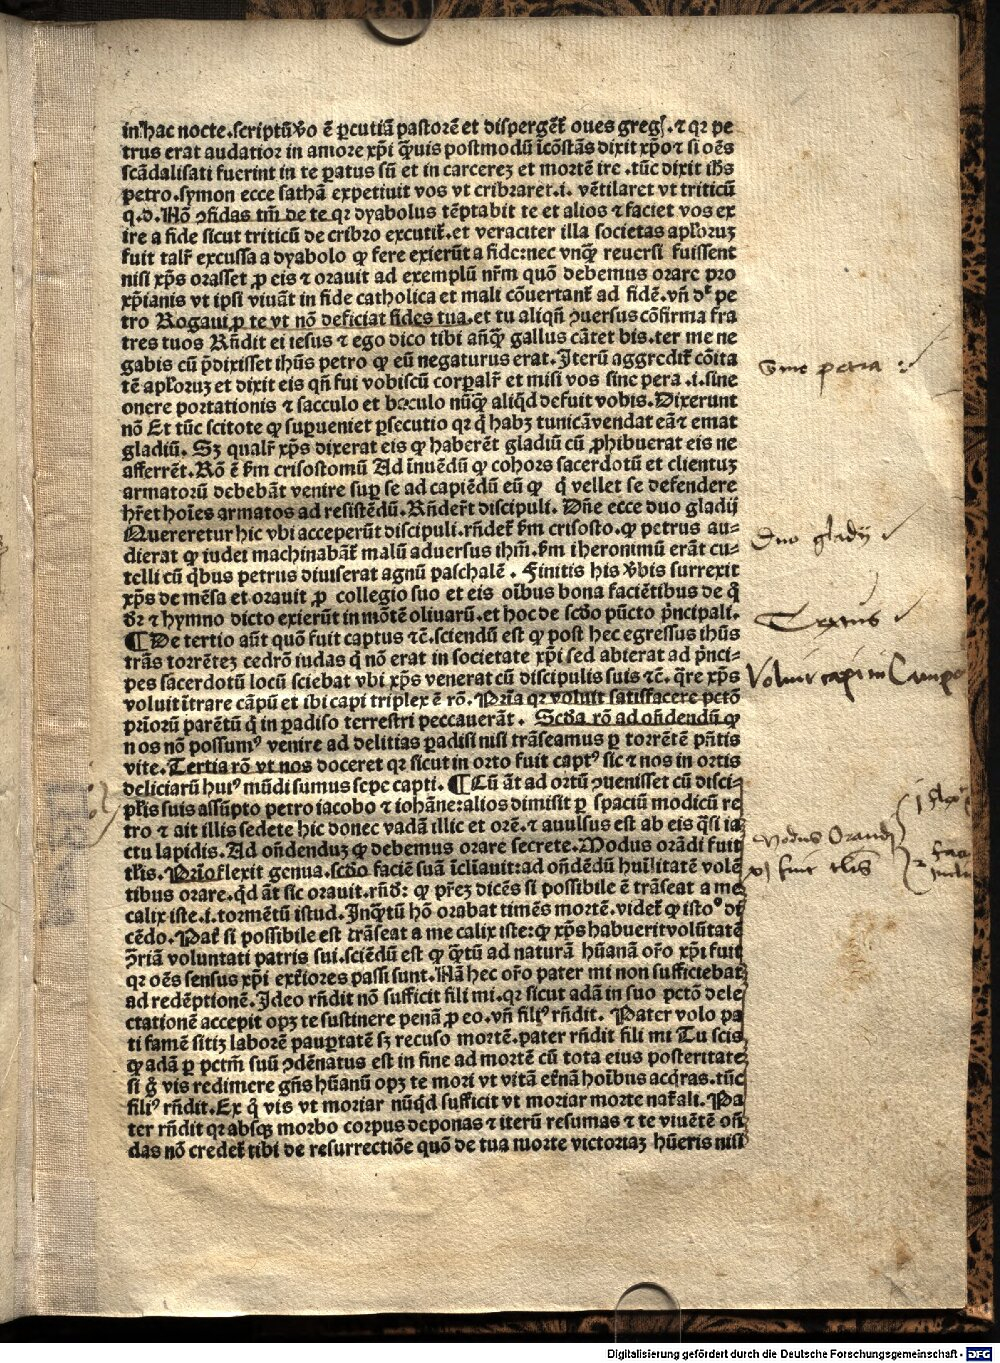 in hac nocte.scriptū v̄o ē ꝑcutiā pastorē et dispergēt̄ oues gregꝭ.⁊ qꝛ pe
trus erat audatior in amore xp̄i q̄uis postmodū īcōstās dixit xp̄o ⁊ si oēs
scādalisati fuerint in te ꝑatus sū et in carcereꝫ et mortē ire.tūc dixit ih̄s
petro.symon ecce sathā expetiuit vos vt cribraret.i. vētilaret vt triticū
q.d. Nō ꝯfidas tm̄ de te qꝛ dyabolus tēptabit te et alios ⁊ faciet vos ex
ire a fide sicut triticū de cribro excutit̄.et veraciter illa societas apl̓oruꝫ
fuit talr̄ excussa a dyabolo ꝙ fere exierūt a fide:nec vnq̄ꝫ reuersi fuissent
nisi xp̄s orasset ꝓ eis ⁊ orauit ad exemplū nr̄m quō debemus orare pro
xp̄ianis vt ipsi viuāt in fide catholica et mali cōuertant̄ ad fidē.vn̄ dꝛ pe
tro Rogaui ꝓ te vt nō deficiat fides tua.et tu aliqn̄ ꝯuersus cōfirma fra
tres tuos Rn̄dit ei iesus ⁊ ego dico tibi an̄q̄ꝫ gallus cātet bis.ter me ne
gabis cū p̄dixisset ihūs petro ꝙ eū negaturus erat.Iterū aggredit̄ cōita
tē apl̓oruꝫ et dixit eis qn̄ fui vobiscū corꝑalr̄ et misi vos sine pera .i.sine
onere portationis ⁊ sacculo et baculo nūq̄ꝫ aliq̇d defuit vobis.Dixerunt
nō Et tūc scitote ꝙ suꝑueniet ꝑsecutio qꝛ q̇ habꝫ tunicā vendat eā ⁊ emat
gladiū. Sꝫ qualr̄ xp̄s dixerat eis ꝙ haberēt gladiū cū ꝓhibuerat eis ne
afferrēt.Rō ē s̄m crisostomū Ad inuēdū ꝙ cohors sacerdotū et clientuꝫ
armatorū debebāt venire suꝑ se ad capiēdū eū ꝙ q̇ vellet se defendere
hr̄et hoīes armatos ad resistēdū.Rn̄der̄t discipuli. Dn̄e ecce duo gladij
Quereretur hic vbi acceperūt discipuli.rn̄det̄ s̄m crisosto.ꝙ petrus au-
dierat ꝙ iudei machinabāt̄ malū aduersus ihm̄.s̄m iheronimū erāt cu-
telli cū q̇bus petrus diuiserat agnū paschalē . Finitis his v̄bis surrexit
xp̄s de mēsa et orauit ꝓ collegio suo et eis oībus bona faciētibus de q̇
dꝛ ⁊ hymno dicto exierūt in mōtē oliuarū.et hoc de scd̄o pūcto p̄ncipali.
¶ De tertio aūt quō fuit captus ⁊c̄.sciendū est ꝙ post hec egressus ihūs
trās torrēteꝫ cedrō iudas q̇ nō erat in societate xp̄i sed abierat ad p̄nci-
pes sacerdotū locū sciebat vbi xp̄s venerat cū discipulis suis ⁊c̄. q̄re xp̄s
voluit ītrare cāpū et ibi capi triplex ē rō. Prīa qꝛ voluit satisfacere pctō
prīorū parētū q̇ in ꝑadiso terrestri peccauerāt . Scd̄a rō ad on̄dendū ꝙ
nos nō possumꝰ venire ad delitias ꝑadisi nisi trāseamus ꝑ torrētē p̄ntis
vite.Tertia rō vt nos doceret qꝛ sicut in orto fuit captꝰ sic ⁊ nos in ortis
deliciarū huiꝰ mūdi sumus sepe capti. ¶ Cū āt ad ortū ꝯuenisset cū disci-
pl̄is suis assūpto petro iacobo ⁊ iohāne:alios dimisit ꝑ spaciū modicū re
tro ⁊ ait illis sedete hic donec vadā illic et orē.⁊ auulsus est ab eis q̄si ia
ctu lapidis. Ad on̄denduꝫ ꝙ debemus orare secrete.Modus orādi fuit
tl̓is. Prīo flexit genua.scd̄o faciē suā īcliauit:ad on̄dēdū hūilitatē volē
tibus orare.q̇d āt sic orauit.rn̄dꝛ: ꝙ pr̄eꝫ dicēs si possibile ē trāseat a me
calix iste.i.tormētū istud. Inq̄tū hō orabat timēs mortē.videt̄ ꝙ istoꝰ di
cēdo.Pat̄ si possibile est trāseat a me calix iste:ꝙ xp̄s habuerit volūtatē
ꝯriā voluntati patris sui.sciēdū est ꝙ q̄tū ad naturā hūanā or̄o xp̄i fuit
qꝛ oēs sensus xp̄i ext̄iores passi sunt.Nā hec or̄o pater mi non sufficiebat
ad redēptionē.Ideo rn̄dit nō sufficit fili mi.qꝛ sicut adā in suo pctō dele
ctationē accepit opꝫ te sustinere penā ꝓ eo.vn̄ filiꝰ rn̄dit. Pater volo pa
ti famē sitiꝫ laborē pauꝑtatē sꝫ recuso mortē.pater rn̄dit fili mi Tu scis
ꝙ adā ꝑ pctm̄ suū ꝯdēnatus est in fine ad mortē cū tota eius posteritate
si ḡ vis redimere gn̄s hūanū opꝫ te mori vt vitā et̄nā hoībus acq̇ras.tūc
filiꝰ rn̄dit.Ex q̇ vis vt moriar nūq̇d sufficit vt moriar morte nat̄ali. Pa
ter rn̄dit qꝛ absqꝫ morbo corpus deponas ⁊ iterū resumas ⁊ te viuētē on̄
das nō credet̄ tibi de resurrectiōe quō de tua morte victoriaꝫ hūeris nisi
Sine petra
Duo gladij
Voluit capi in Campo
Modus Orandi
Digitalisierung gefördert durch die Deutsche Forschungsgemeinschaft - DFG